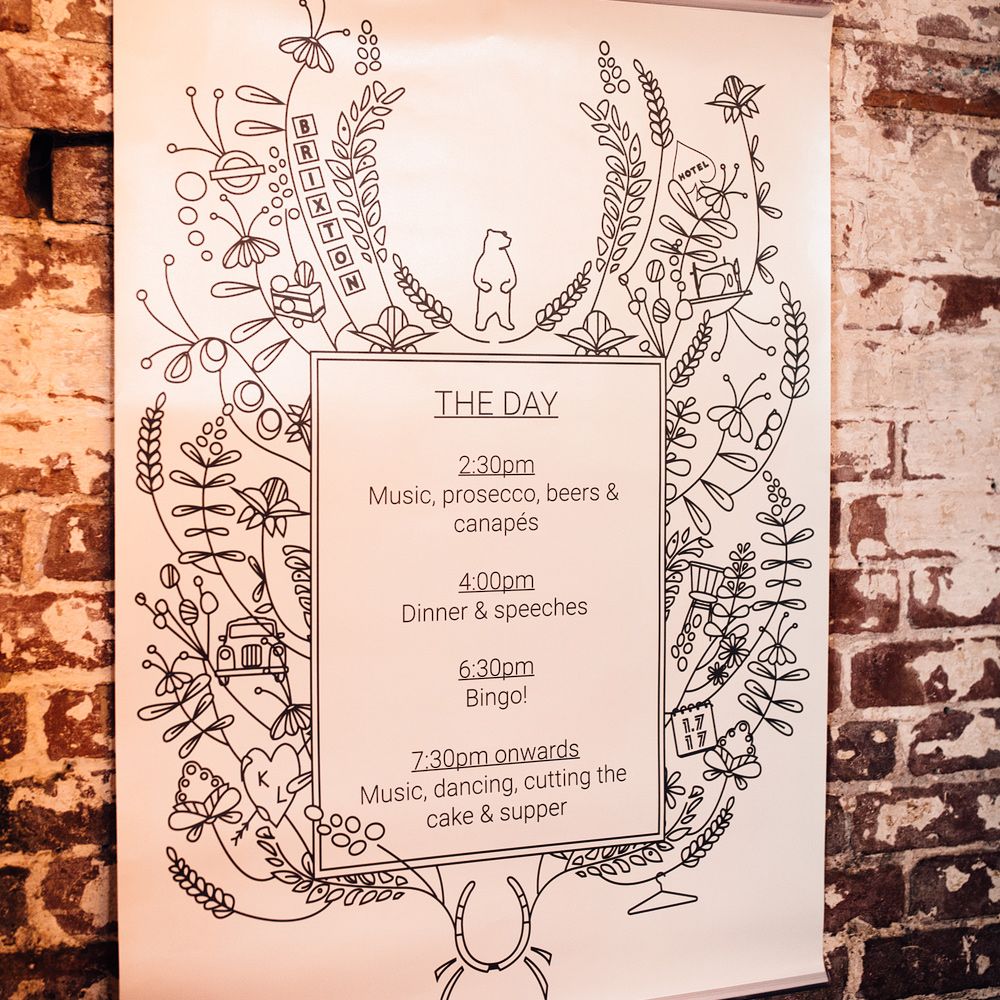 BRIXTON
HOTEL
THE DAY
2:30pm
Music, prosecco, beers &
canapés
4:00pm
Dinner & speeches
6:30pm
Bingo!
7:30pm onwards
Music, dancing, cutting the
cake & supper
1.7
17
K
L